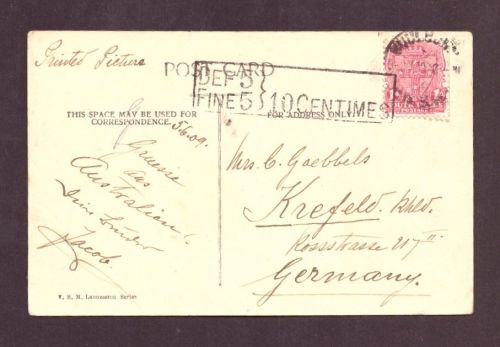 Printed Picture
POST CARD
DEF 5
FINE 5
10 CENTIMES
THIS SPACE MAY BE USED FOR
CORRESPONDENCE.
FOR ADDRESS ONLY
5/6.09.
Gruesse
aus
Australien!
Dein Bruder
Jacob
Mrs. C. Goebbels
Krefeld. Rhld.
Rossstrasse 217 II
Germany.
V. S. M. Launceston Series